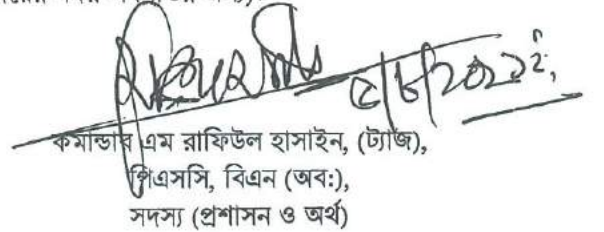 ৫/৮/২০২১ইং,
কমান্ডার এম রাফিউল হাসাইন, (ট্যাজ),
পিএসসি, বিএন (অব:),
সদস্য (প্রশাসন ও অর্থ)